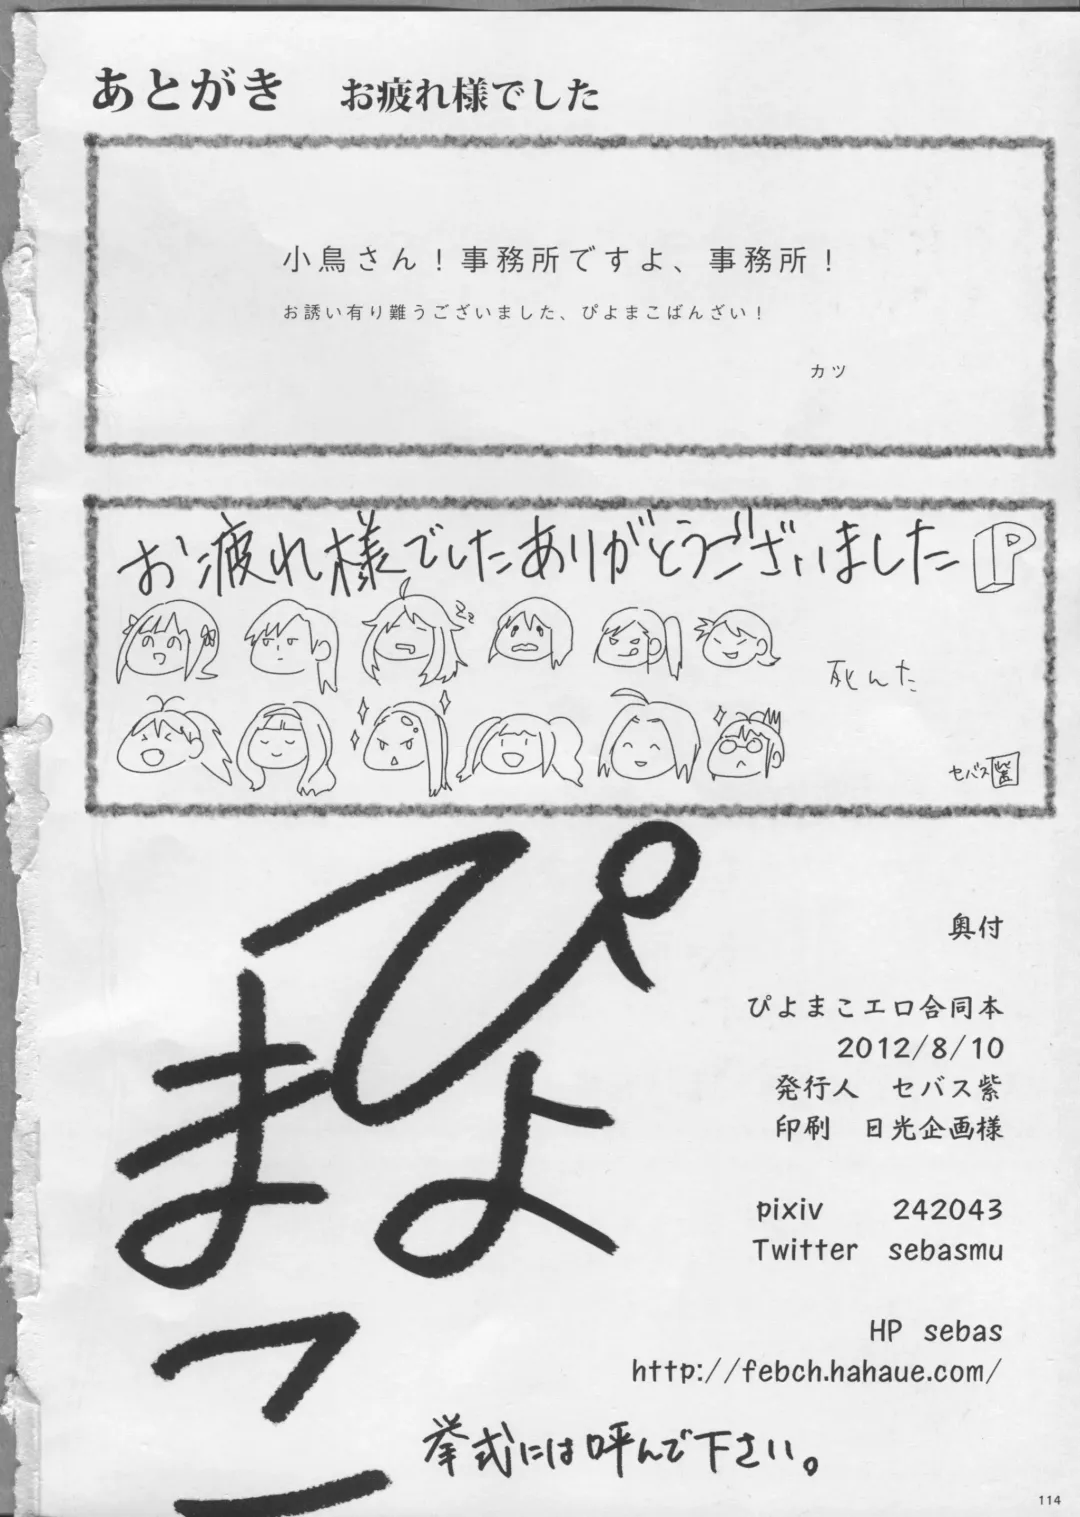 あとがき　お疲れ様でした
小鳥さん！事務所ですよ、事務所！
お誘い有り難うございました、ぴよまこばんざい！
カツ
お疲れ様でしたありがとうございましたP
死んた
セバス紫
ぴよ
まこ
奥付
ぴよまこエロ合同本
2012/8/10
発行人　セバス紫
印刷　日光企画様
pixiv　242043
Twitter　sebasmu
HP sebas
http://febch.hahaue.com/
挙式には呼んで下さい。
114